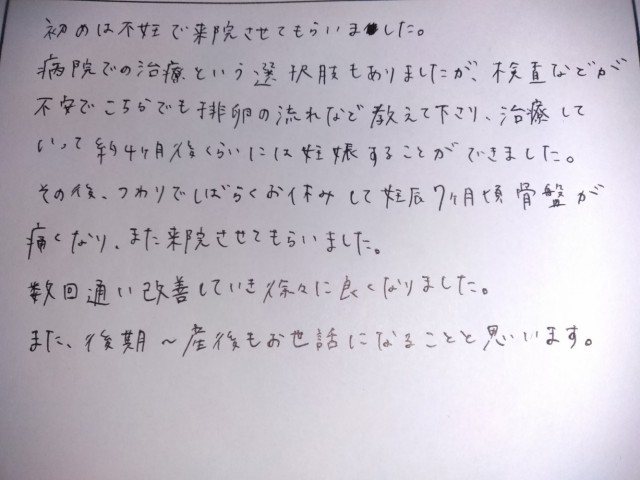 初めは不妊で来院させてもらいました。
病院での治療という選択肢もありましたが、検査などが
不安でこちらでも排卵の流れなど教えて下さり、治療して
いって約4ヶ月後くらいには妊娠することができました。
その後、つわりでしばらくお休みして妊辰7ヶ月頃骨盤が
痛くなり、また来院させてもらいました。
数回通い改善していき徐々に良くなりました。
また、後期～産後もお世話になることと思います。